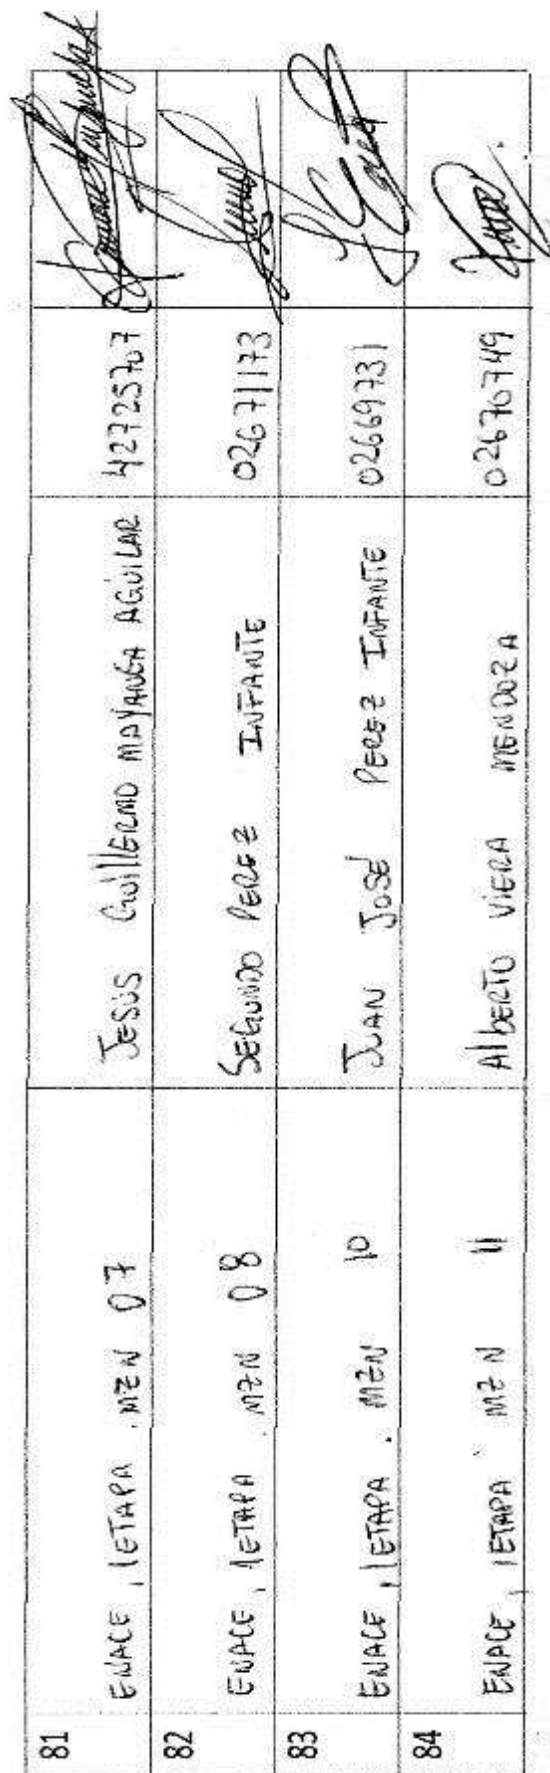 81 ENACE, 1 ETAPA, MZN 07 JESÚS GUILLERMO MAYANGA AGUILAR 42725707
82 ENACE, 1 ETAPA, MZN 08 SEGUNDO PEREZ INFANTE 02671173
83 ENACE, 1 ETAPA, MZN 10 JUAN JOSÉ PEREZ INFANTE 02669731
84 ENACE, 1 ETAPA MZN 11 ALBERTO VIERA MENDOZA 02670749